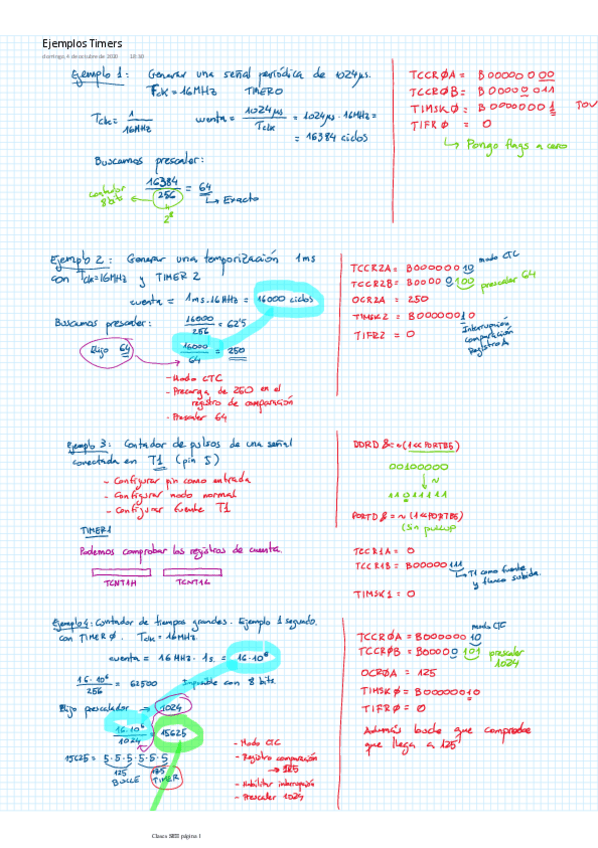 Ejemplos Timers
domingo, 4 de octubre de 2020 18:30
Ejemplo 1: Generar una señal periódica de 1024µs.
Fck = 16MHz TIMER0
Tclk = 1/16MHz cuenta = 1024µs/Tclk = 1024µs·16MHz =
= 16384 ciclos
Buscamos prescaler:
16384/256 = 64
↳ Exacto
contador 8 bits
2⁸
TCCRØA = B00000000
TCCRØB = B00000011
TIMSKØ = B00000001 TOV
TIFRØ = 0
↳ Pongo flags a cero
Ejemplo 2: Generar una temporización 1ms
con Tclk=16MHz y TIMER 2
cuenta = 1ms·16MHz = 16000 ciclos
Buscamos prescaler: 16000/256 = 62'5
Elijo 64
16000/64 = 250
- Modo CTC
- Precarga de 250 en el
registro de comparación
- Prescaler 64
TCCR2A = B00000010 modo CTC
TCCR2B = B00000100 prescaler 64
OCR2A = 250
TIMSK2 = B00000010
TIFR2 = 0
Interrupción
comparación
Registro A
Ejemplo 3: Contador de pulsos de una señal
conectada en T1 (pin 5)
- Configurar pin como entrada
- Configurar modo normal
- Configurar fuente T1
TIMER1
Podemos comprobar los registros de cuenta.
TCNT1H TCNT1L
DDRD &= ~(1<<PORTB5)
00100000
↓ ~
11011111
PORTD &= ~(1<<PORTB5)
(Sin pullup)
TCCR1A = 0
TCCR1B = B00000111
↳ T1 como fuente
y flanco subida.
TIMSK1 = 0
Ejemplo 4: Contador de tiempos grandes. Ejemplo 1 segundo.
con TIMERØ. Tclk = 16MHz.
cuenta = 16MHz·1s = 16·10⁶
16·10⁶/256 = 62500 Imposible con 8 bits
Elijo prescalador → 1024
16·10⁶/1024 = 15625
15625 = 5·5·5·5·5·5
125 125
BUCLE TIMER
- Modo CTC
- Registro comparación
→ 125
- Habilitar interrupción
- Prescaler 1024
TCCRØA = B00000010 modo CTC
TCCRØB = B00000101 prescaler 1024
OCR0A = 125
TIMSKØ = B00000010
TIFRØ = 0
Además bucle que compruebe
que llega a 125
Clases SBM página 1